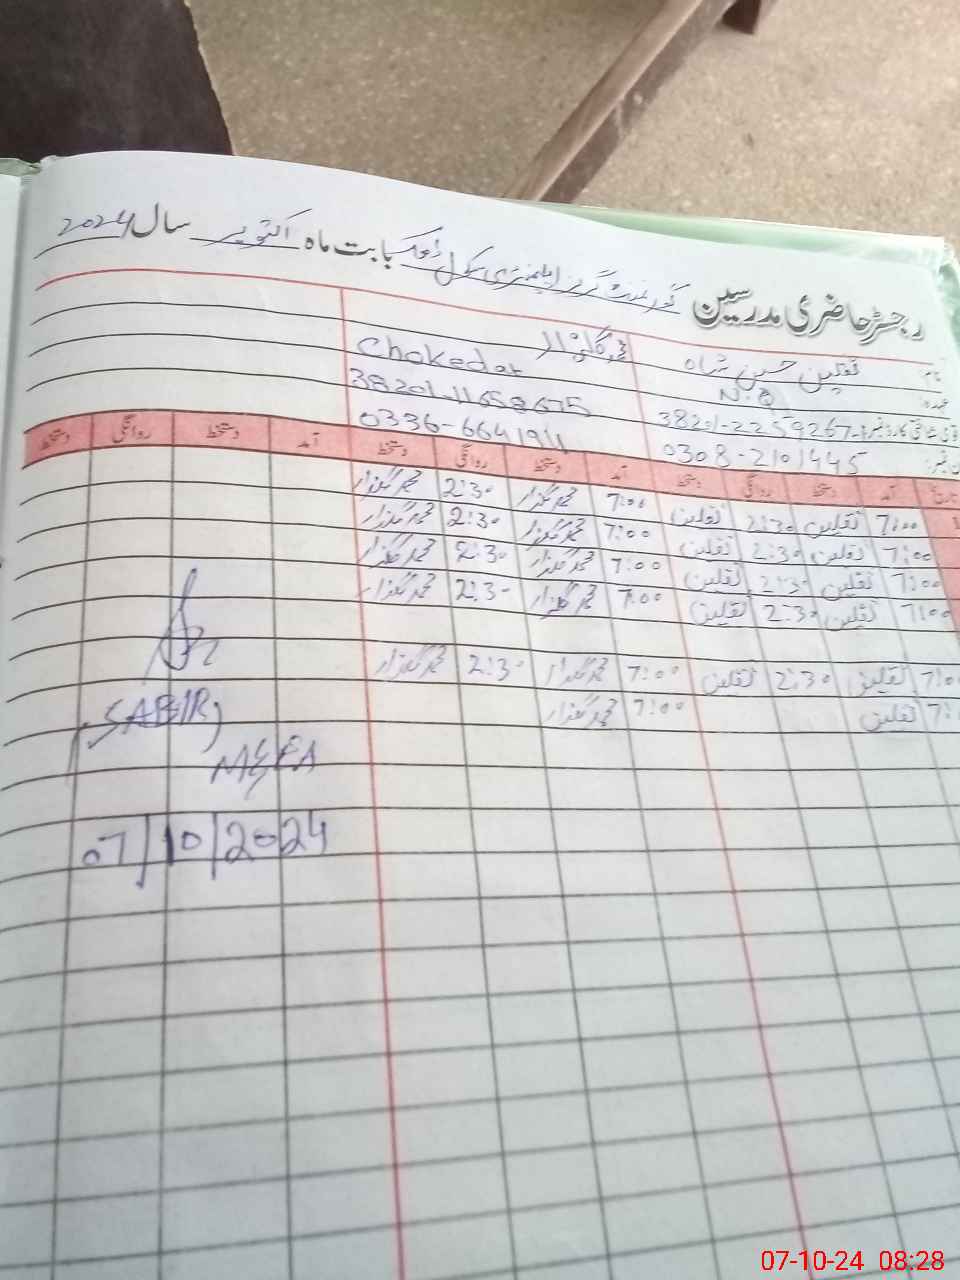 رجسٹر حاضری مدرسین گورنمنٹ گرلز ایلیمنٹری سکول ڈھاک بابت ماہ اکتوبر سال 2024
نام ثقلین حسین شاہ محمد گلزار
عہدہ: N.Q Chokedar
قومی شناختی کارڈ نمبر: 38201-2259267-1 38201-11658675
ن نمبر: 0308-2101445 0336-6641911
تاریخ آمد دستخط روانگی دستخط آمد دستخط روانگی دستخط آمد دستخط روانگی دستخط
1 7:00 ثقلین 2:30 ثقلین 7:00 محمد گلزار 2:30 محمد گلزار
7:00 ثقلین 2:30 ثقلین 7:00 محمد گلزار 2:30 محمد گلزار
7:00 ثقلین 2:30 ثقلین 7:00 محمد گلزار 2:30 محمد گلزار
7:00 ثقلین 2:30 ثقلین 7:00 محمد گلزار 2:30 محمد گلزار
7:00 ثقلین 2:30 ثقلین 7:00 محمد گلزار 2:30 محمد گلزار
7: ثقلین 7:00 محمد گلزار
(SABIR)
MEA
07/10/2024
07-10-24 08:28